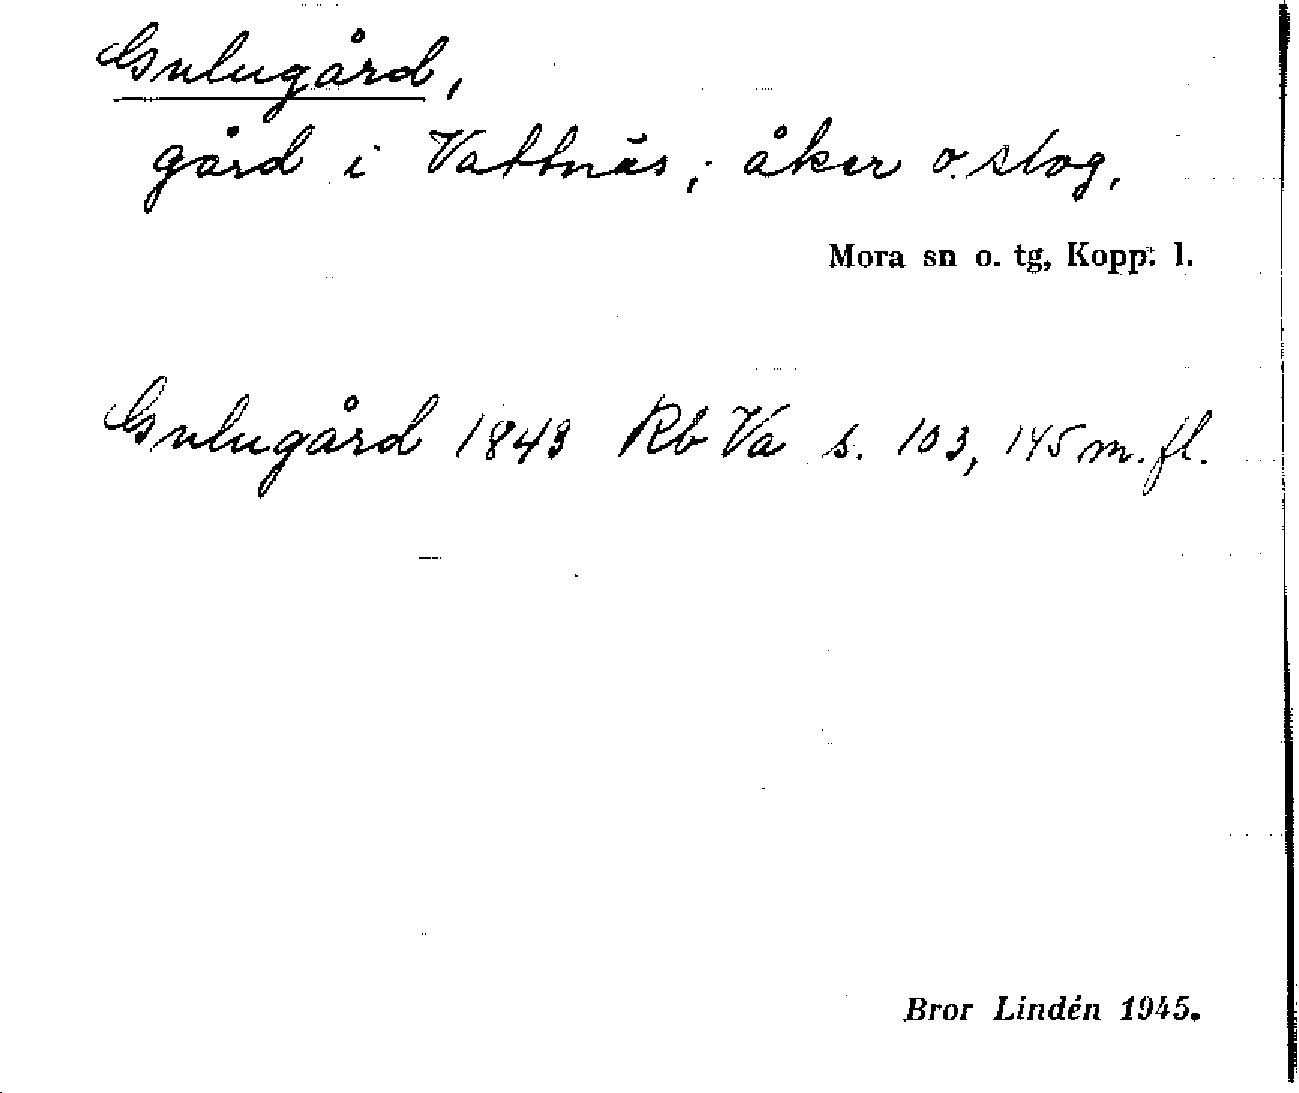 Gulugård,
gård i Vattnäs; åker o. slog.
Mora sn o. tg, Kopp. l.
Gulugård 1843 Rb Va s. 103, 145 m. fl.
Bror Lindén 1945.